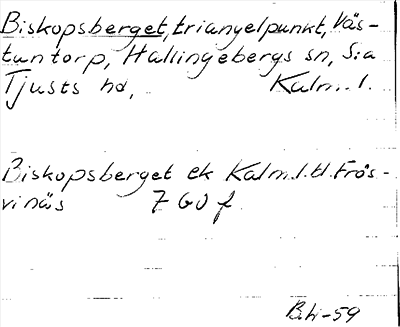 Biskopsberget, triangelpunkt, Väs-
tantorp, Hallingebergs sn, S:a
Tjusts hd, Kalm. l.
Biskopsberget ek Kalm. l. tl. Frös-
vinäs 7 GV f
B.Li-59